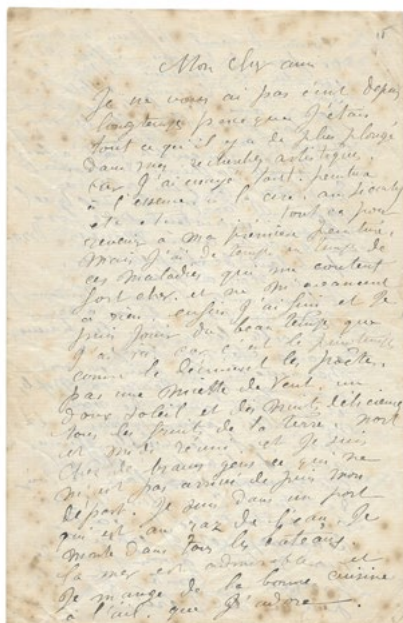 Mon cher ami
Je ne vous ai pas écrit depuis
longtemps parce que j'étais
tout ce qu'il y a de plus plongé
dans mes recherches artistiques.
car j'ai essayé tout. peinture
à l'essence à la cire. au
etc etc tout ça pour
revenir à ma première peinture.
Mais j'ai de temps en temps de
ces maladies qui me coutent
fort cher. et ne m'avancent
à rien. enfin j'ai fini et je
puis jouir du beau temps que
j'ai ici car c'est le printemps
comme le décrivent les poètes.
pas une miette de vent. un
doux soleil et des nuits délicieuses
tous les fruits de la terre. nord
et midi réunis. et je suis
chez de braves gens ce qui ne
m'est pas arrivé depuis mon
départ. Je suis dans un port
qui est au raz de l'eau. Je
monte dans tous les bateaux.
la mer est admirable et
je mange de la bonne cuisine
à l'ail. que j'adore.